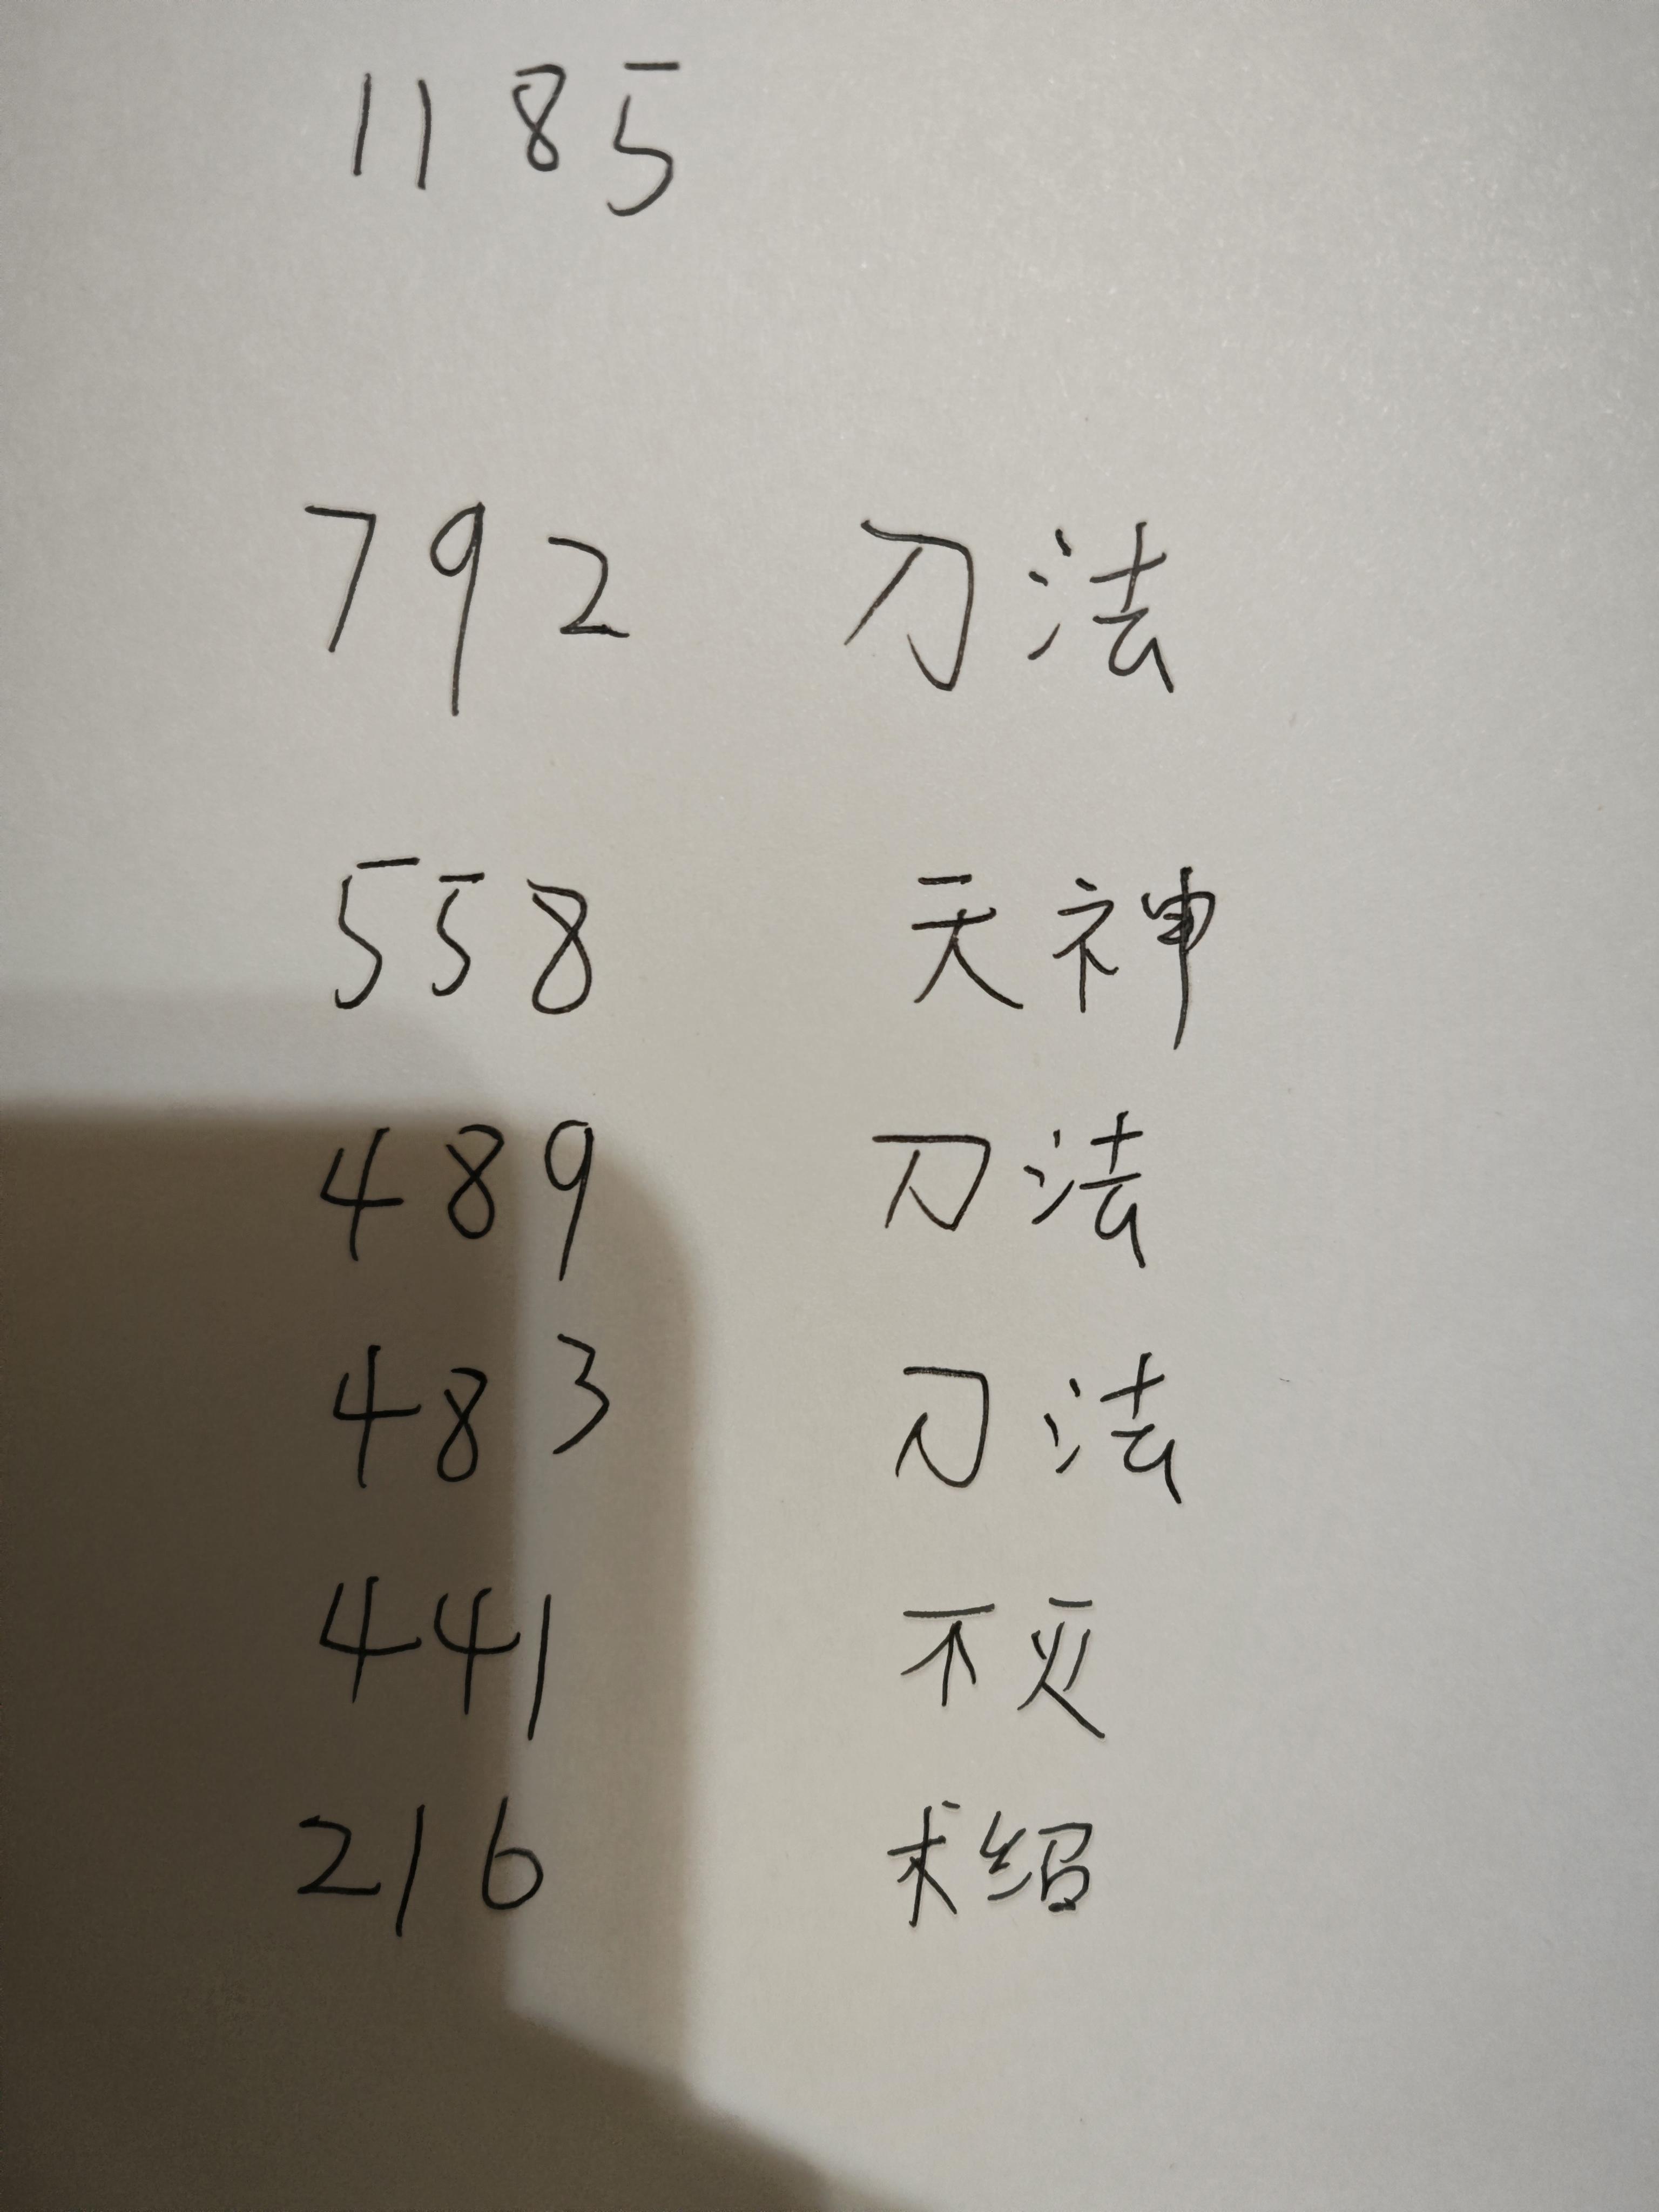 1185
792 刀法
558 天神
489 刀法
483 刀法
441 不灭
216 求绍